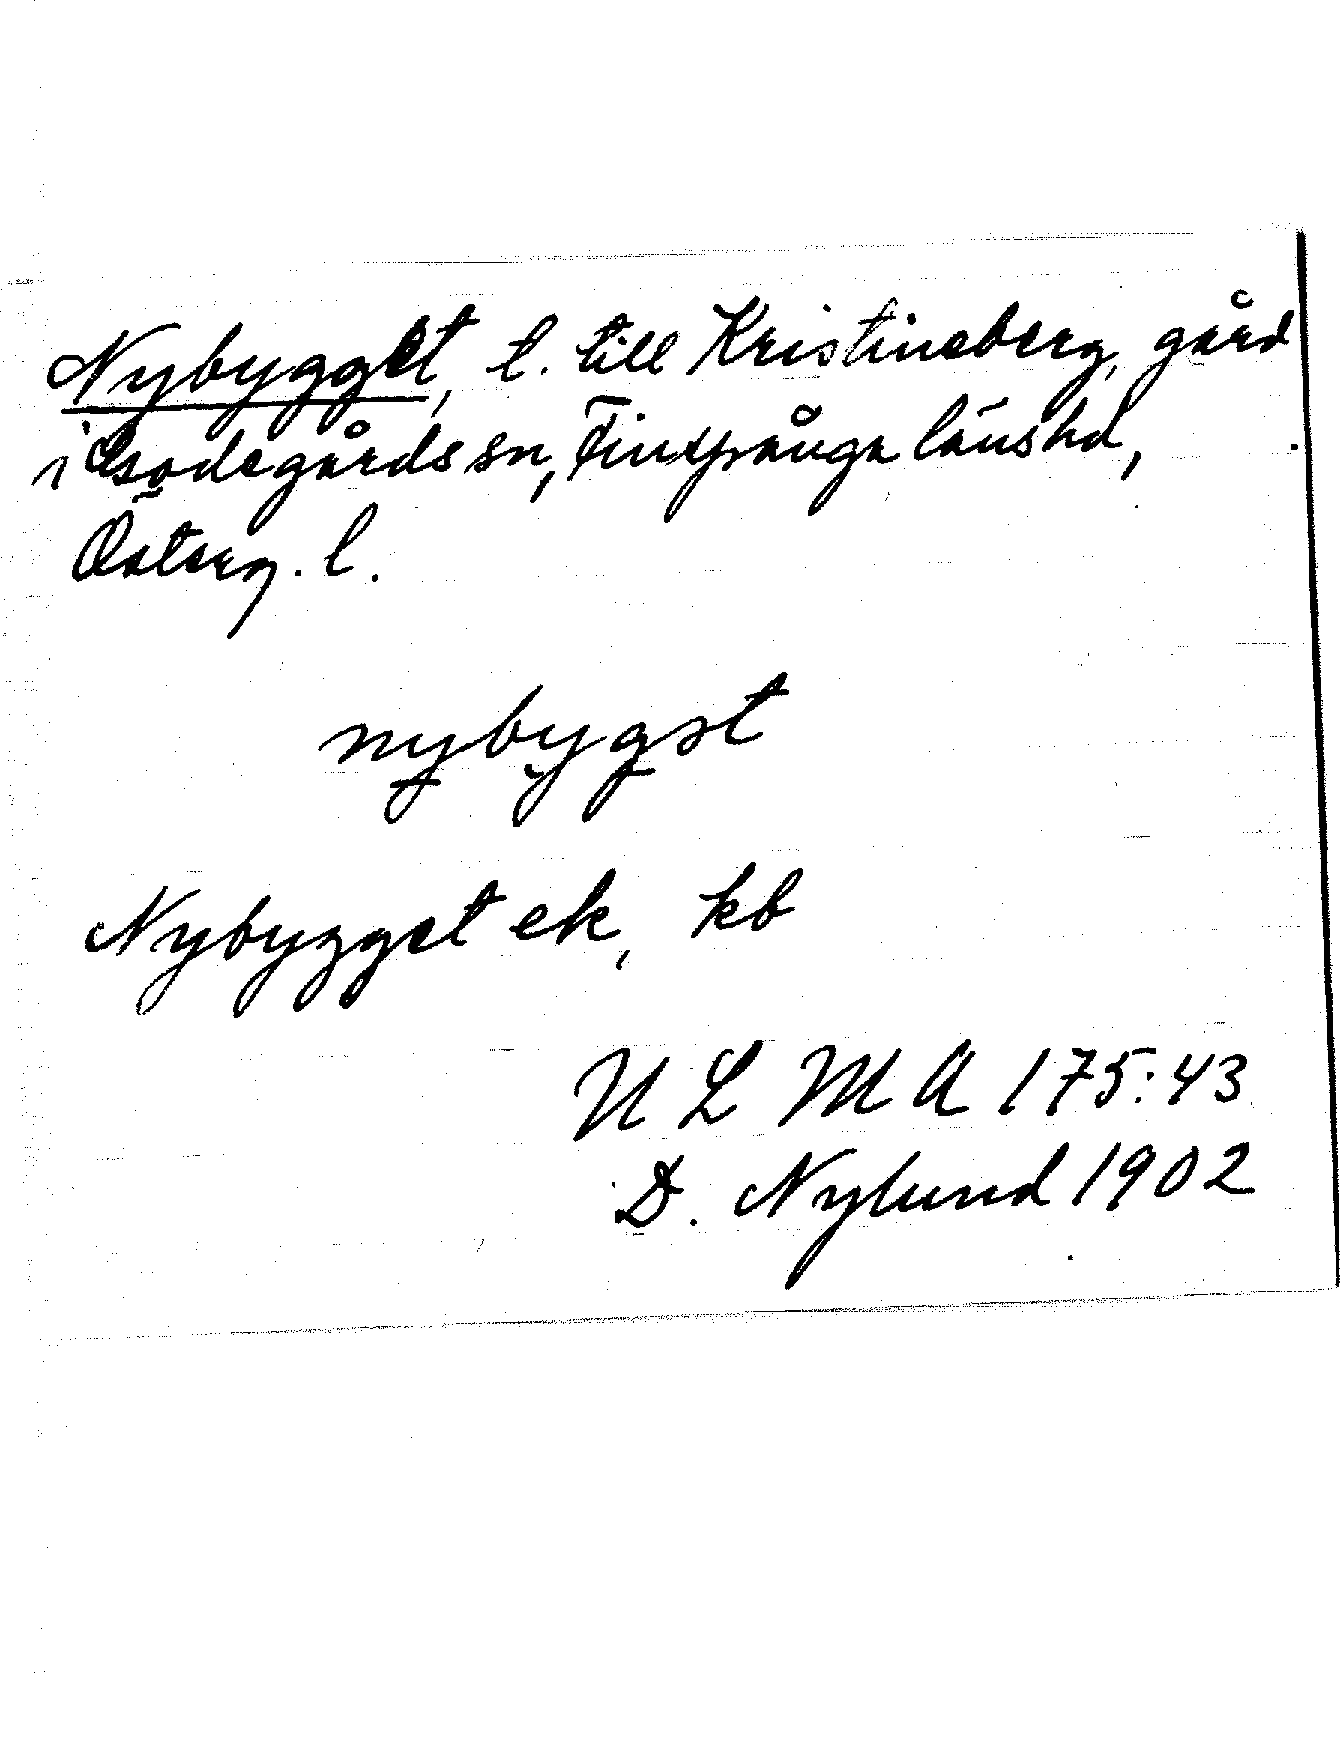 Nybygget, t. till Kristineberg, gård
i Risinge sn, Finspånga länshd,
Österg. l.
nybygət
Nybygget ek, kb
ULMA 175:43
D. Nylund 1902